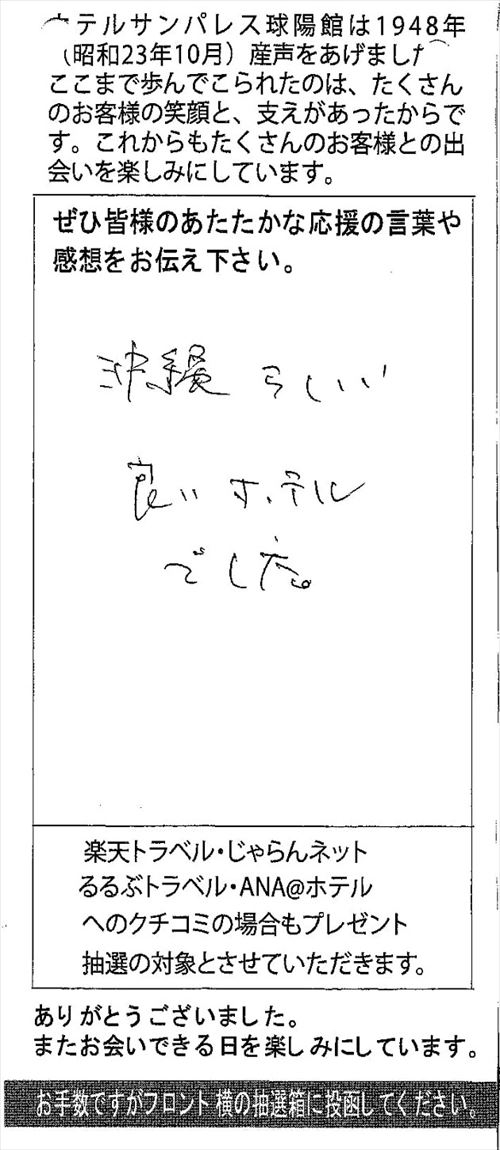 テルサンパレス球陽館は1948年
(昭和23年10月)産声をあげました
ここまで歩んでこられたのは、たくさん
のお客様の笑顔と、支えがあったからで
す。これからもたくさんのお客様との出
会いを楽しみにしています。
ぜひ皆様のあたたかな応援の言葉や
感想をお伝え下さい。
沖縄らしいい
良いホテル
でした。
楽天トラベル・じゃらんネット
るるぶトラベル・ANA@ホテル
へのクチコミの場合もプレゼント
抽選の対象とさせていただきます。
ありがとうございました。
またお会いできる日を楽しみにしています。
お手数ですがフロント横の抽選箱に投函してください。